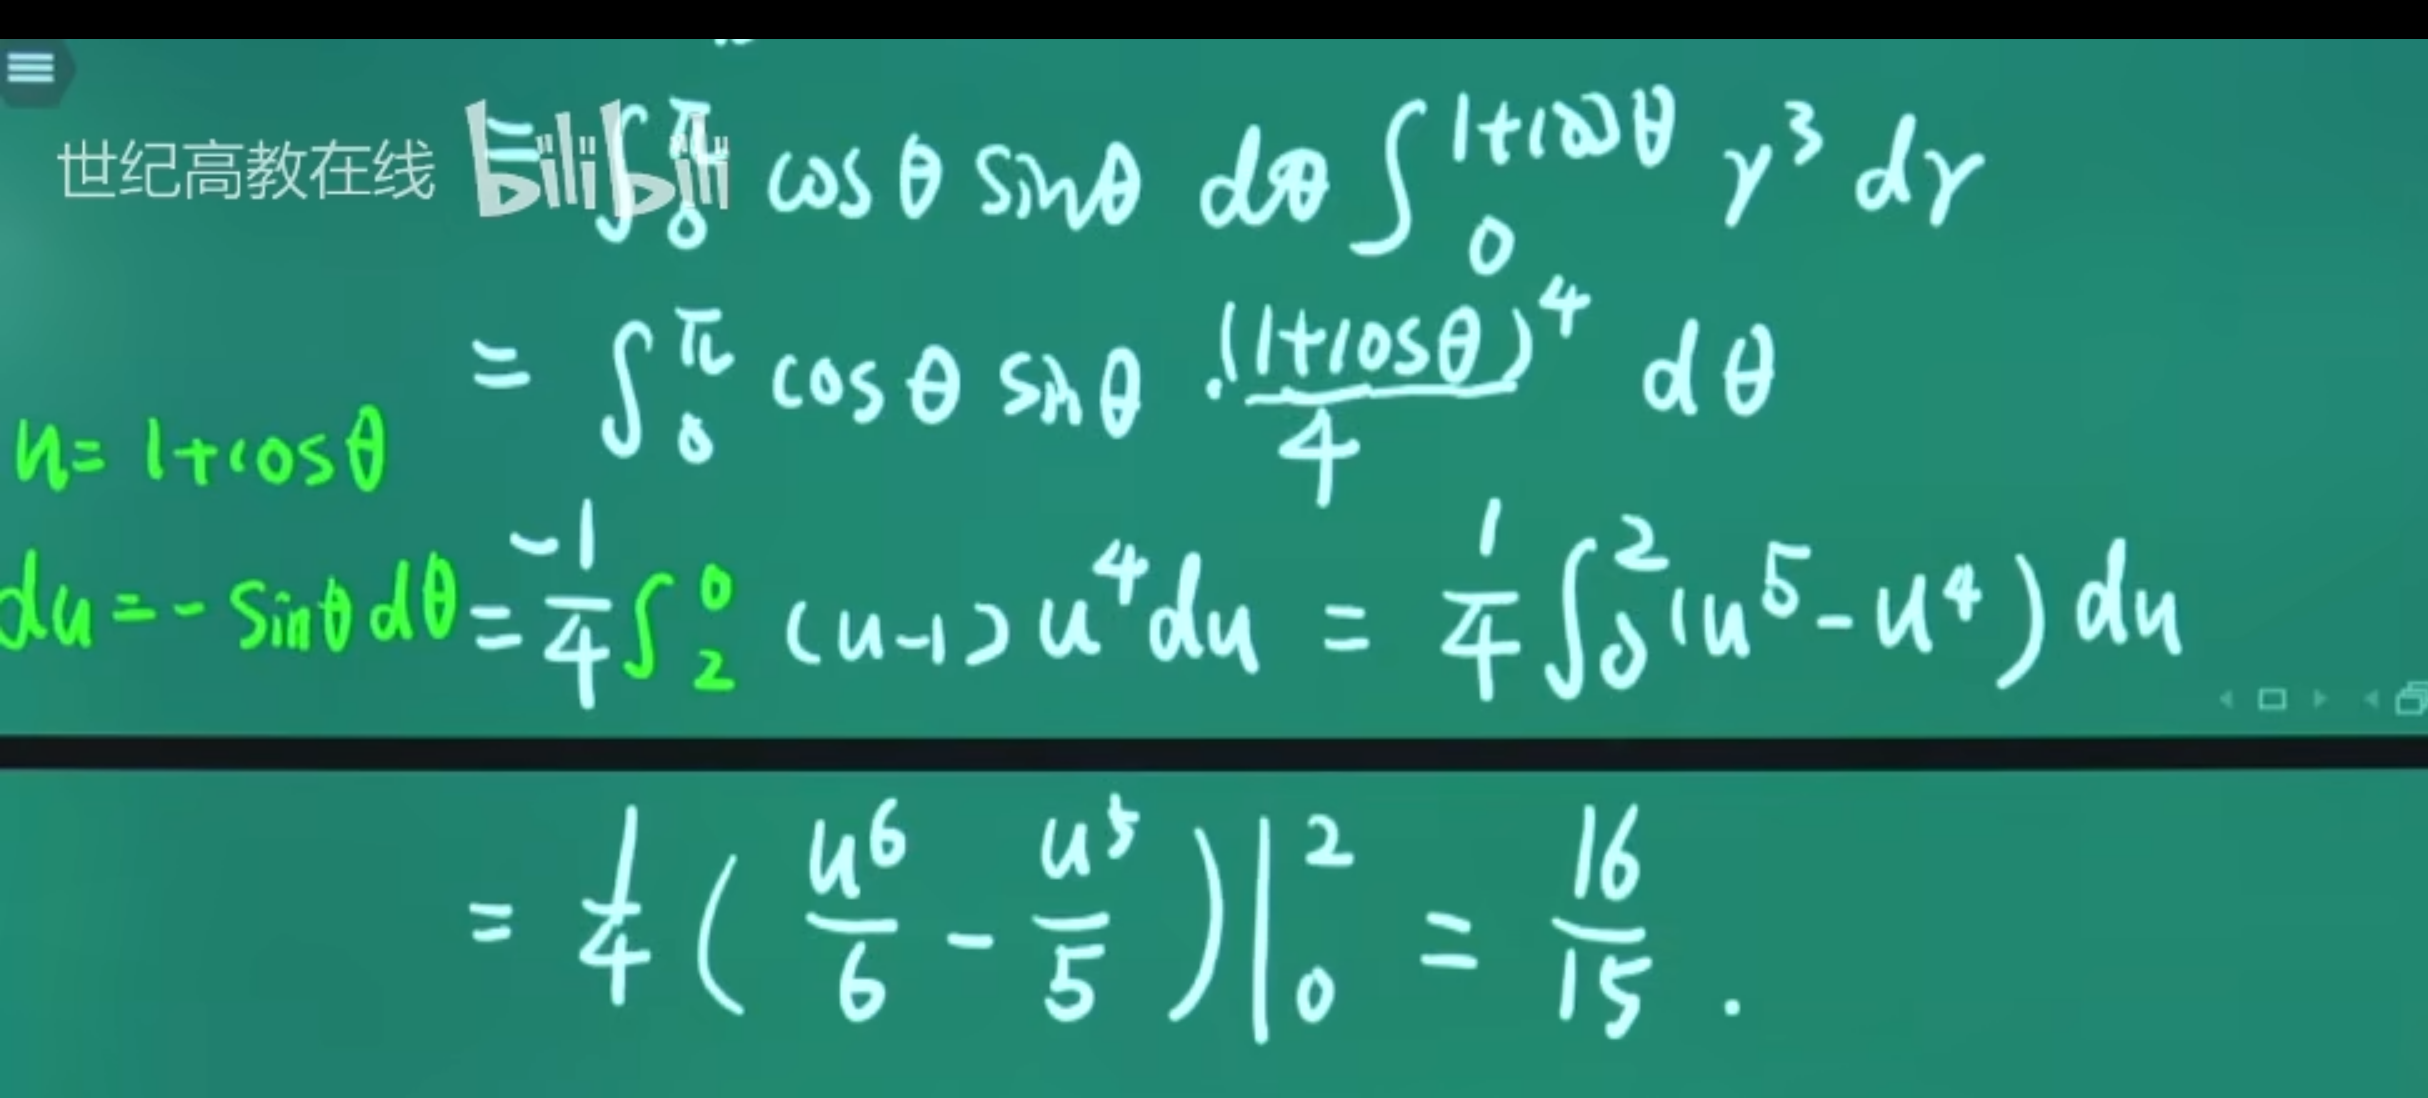 世纪高教在线 bilibili
= ∫₀^π cosθ sinθ dθ ∫₀^(1+cosθ) r³ dr
= ∫₀^π cosθ sinθ · (1+cosθ)⁴/4 dθ
u = 1+cosθ
du = - sinθ dθ
= -1/4 ∫₂⁰ (u-1) u⁴ du = 1/4 ∫₀² (u⁵ - u⁴) du
= 1/4 ( u⁶/6 - u⁵/5 ) |₀² = 16/15 .